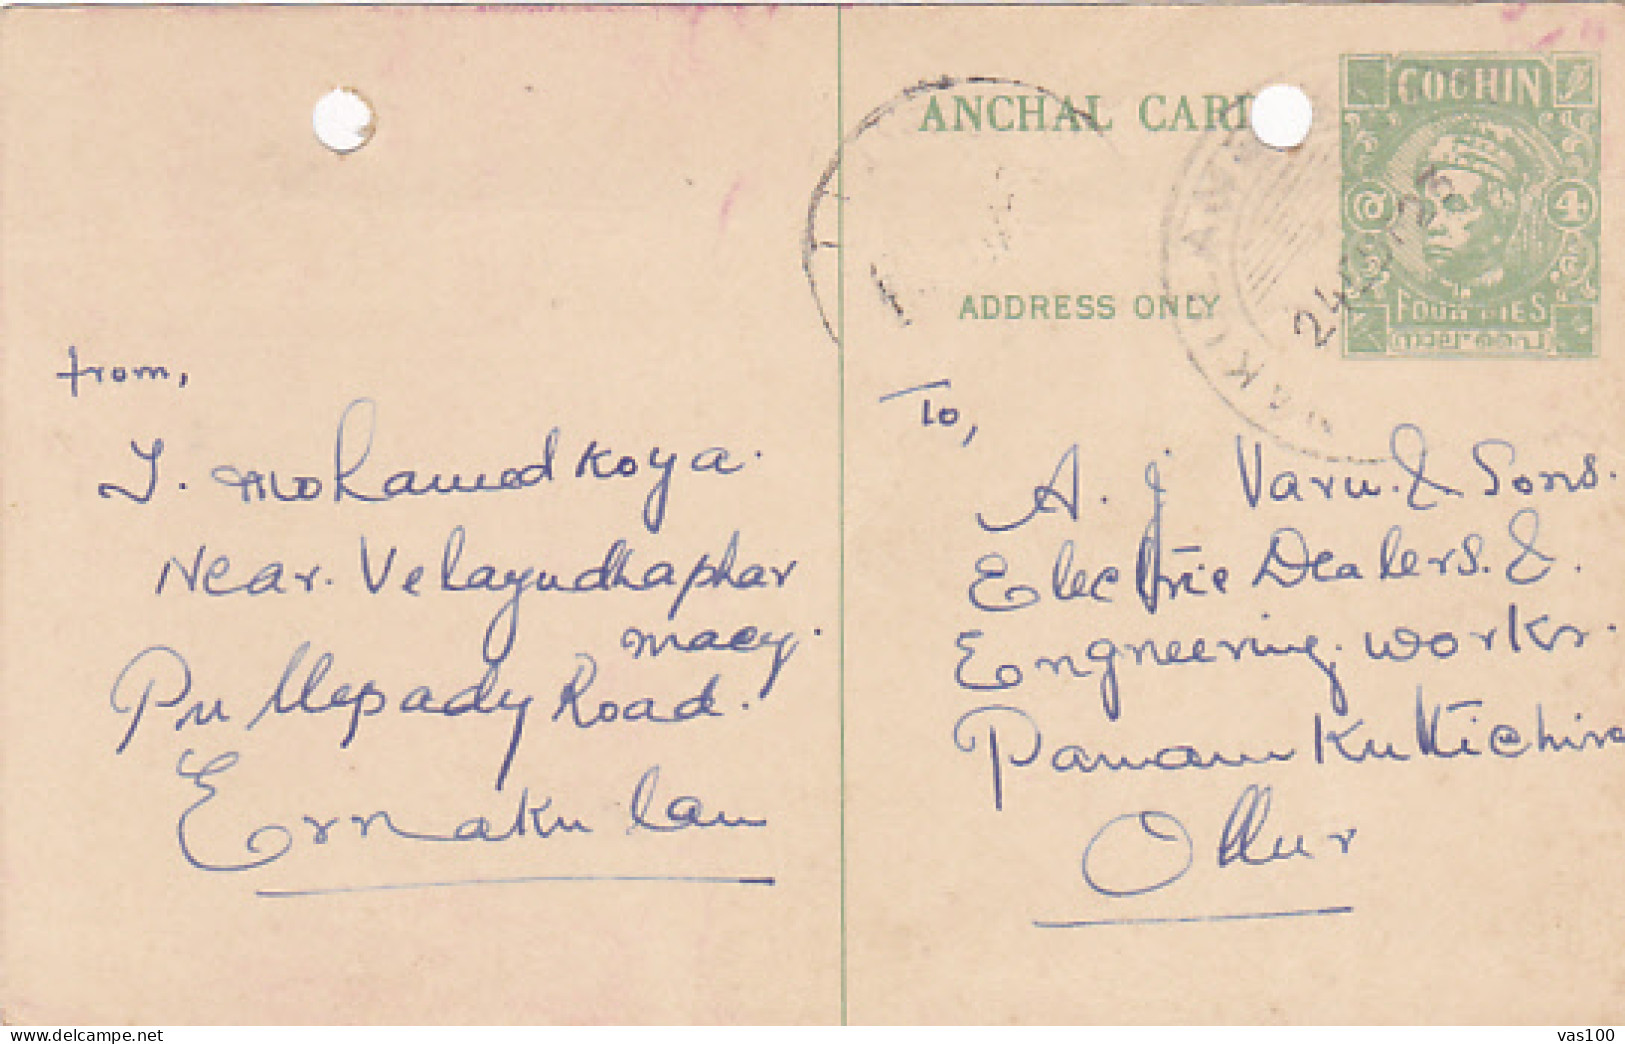 ANCHAL CARD
COCHIN
4
FOUR PIES
ADDRESS ONLY
from,
J. Mohamed Koya.
Near. Velayudhaphar
macy.
Pullepady Road.
Ernakulam
To,
A. J Varu. & Sons.
Electric Dealers. &.
Engneering. works.
Panamkuttichira
Ollur
vas100